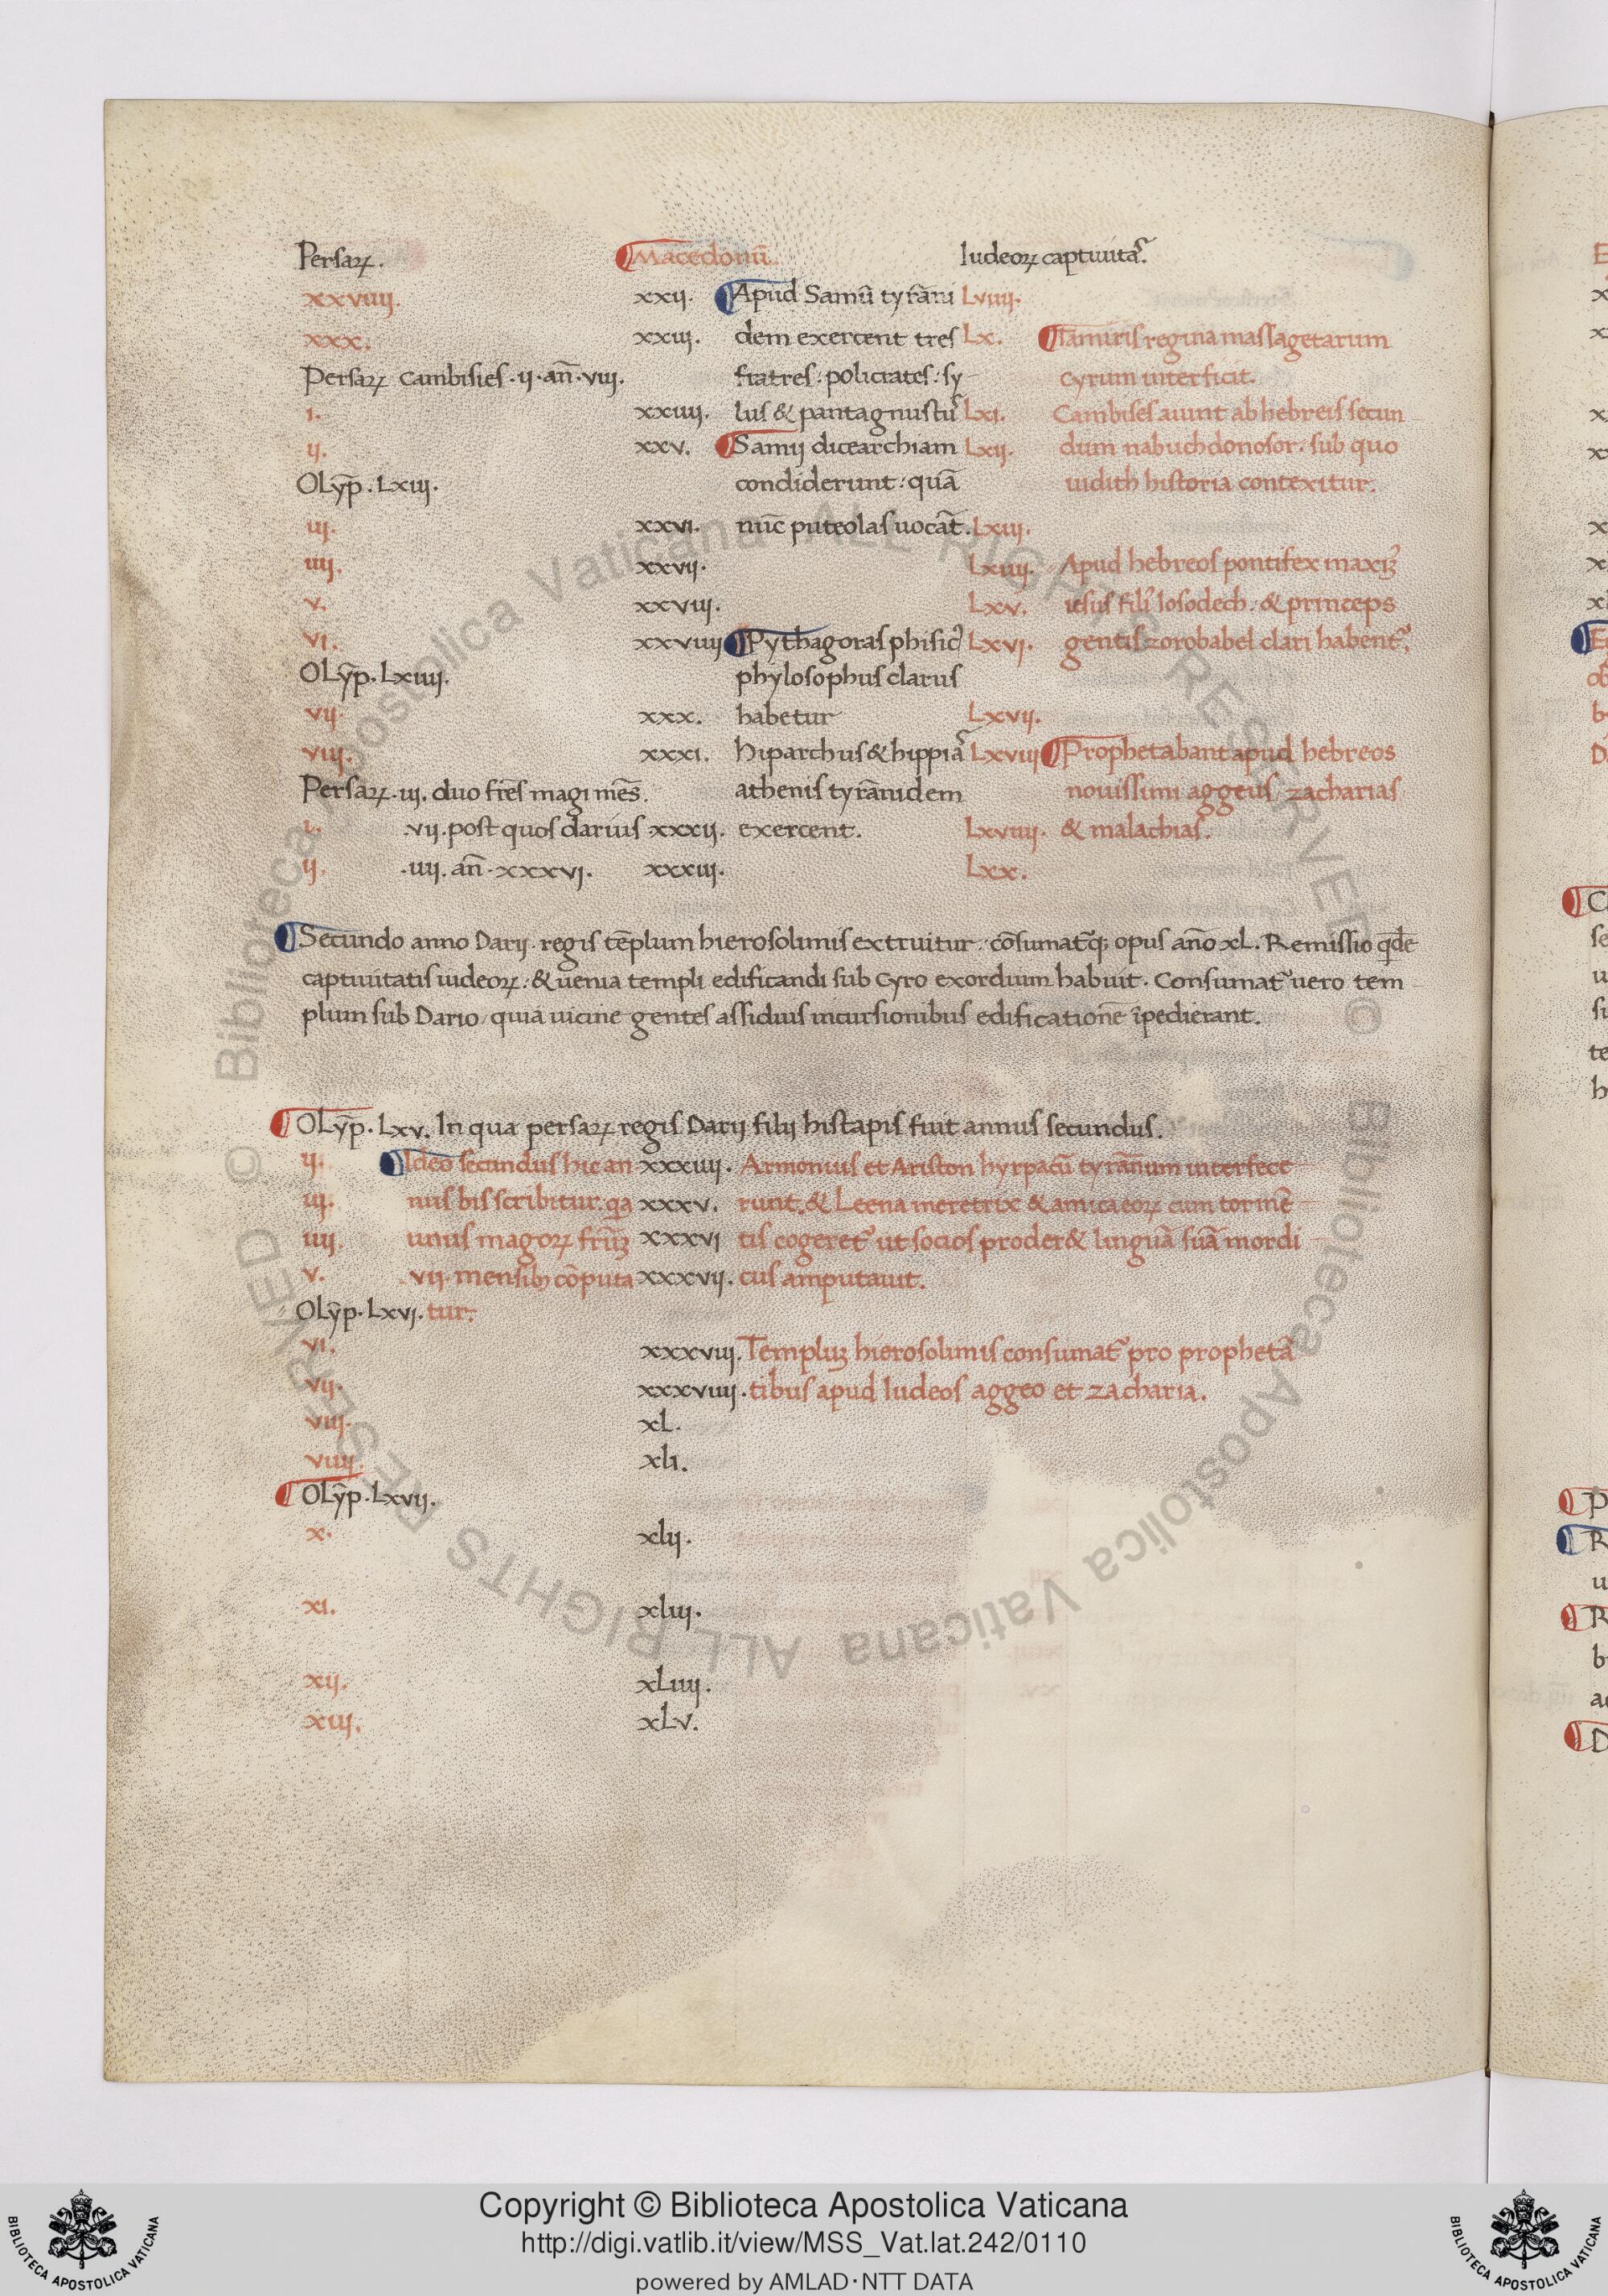 Persaꝝ. Macedonū. Iudeoꝝ captiuita᷑.
xxviiij. xxij. Apud Samū tyrāni Lviiij.
xxx. xxiij. dem exercent tres Lx. Tamiris regina massagetarum
Persaꝝ Cambisies · ij · an̄ · viij. fratres: policrates: sy cyrum interficit.
i. xxiiij. lus & pantagnustu᷑ Lxi. Cambises aiunt ab hebreis secun
ij. xxv. Samij dicearchiam Lxij. dum nabuchdonosor. sub quo
Olȳp. Lxiij. condiderunt: quā iudith historia contexitur.
iij. xxvi. nūc puteolas uocāt. Lxiij.
iiij. xxvij. Lxiiij. Apud hebreos pontifex maxiꝫ
v. xxviij. Lxv. iesus fili᷑ Iosodech. & princeps
vi. xxviiij Pythagoras phisic᷒ Lxvi. gentis zorobabel clari habent᷑.
Olȳp. Lxiiij. phylosophus clarus
vij. xxx. habetur Lxvij.
viij. xxxi. hiparchus & hippia᷑ Lxviij Prophetabant apud hebreos
Persaꝝ. iij. duo frēs magi mēs. athenis tyrānidem nouissimi aggeus/ zacharias
i. vij. post quos darius xxxij. exercent. Lxviiij. & malachias.
ij. · iiij. an̄ · xxxvi. xxxiij. Lxx.
Secundo anno Darij. regis tēplum hierosolimis extruitur: cōsumat᷑qꝫ opus an̄o xL. Remissio qd̄e
captiuitatis iudeoꝝ: & uenia templi edificandi sub Cyro exordium habuit. Consumat᷑ uero tem
plum sub Dario/ quia uicine gentes assiduis incursionibus edificationē īpedierant.
Olȳp. Lxv. In qua persaꝝ regis Darij filij histapis fuit annus secundus.
ij. Ideo secundus hic an xxxiiij. Armonius et Ariston hyrpacū tyrānum interfece
iij. nus bis scribitur: qa xxxv. runt. & Leena meretrix & amica eoꝝ cum tormē
iiij. unus magoꝝ frūꝫ xxxvi tis cogeret᷑ ut socios proder& linguā suā mordi
v. vij. mensibꝫ cōputa xxxvij. cus amputauit.
Olȳp. Lxvi. tur.
vi. xxxviij. Templuꝫ hierosolimis consumat᷑ pro prophetā
vij. xxxviiij. tibus apud Iudeos aggeo et zacharia.
viij. xL.
viiij. xli.
Olȳp. Lxvij.
x. xlij.
xi. xliij.
xij. xLiiij.
xiij. xLv.
© Biblioteca Apostolica Vaticana ALL RIGHTS RESERVED © Biblioteca Apostolica Vaticana ALL RIGHTS RESERVED
Copyright © Biblioteca Apostolica Vaticana
http://digi.vatlib.it/view/MSS_Vat.lat.242/0110
powered by AMLAD·NTT DATA
BIBLIOTECA APOSTOLICA VATICANA
BIBLIOTECA APOSTOLICA VATICANA